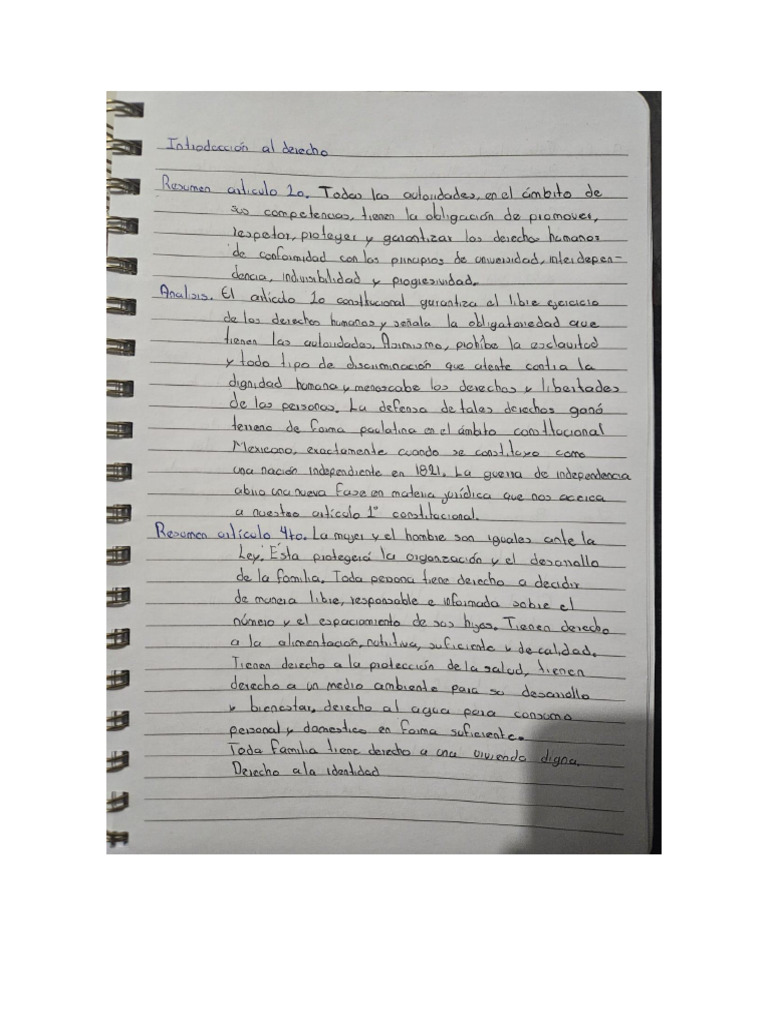 Introducción al derecho
Resumen artículo 1o. Todas las autoridades, en el ámbito de
sus competencias, tienen la obligación de promover,
respetar, proteger y garantizar los derechos humanos
de conformidad con los principios de universidad, interdepen-
dencia, indivisibilidad y progresividad.
Analisis. El artículo 1o constitucional garantiza el libre ejercicio
de los derechos humanos y señala la obligatoriedad que
tienen las autoridades. Asimismo, prohibe la esclavitud
y todo tipo de discriminación que atente contra la
dignidad humana y menoscabe los derechos y libertades
de las personas. La defensa de tales derechos ganó
terreno de forma paulatina en el ámbito constitucional
Mexicano, exactamente cuando se constituyo como
una nación independiente en 1821. La guerra de independencia
abrio una nueva fase en materia jurídica que nos acerca
a nuestro artículo 1° constitucional.
Resumen artículo 4to. La mujer y el hombre son iguales ante la
Ley. Ésta protegerá la organización y el desarrollo
de la familia. Toda persona tiene derecho a decidir
de manera libre, responsable e informada sobre el
número y el espaciamiento de sus hijos. Tienen derecho
a la alimentación, nutritiva, suficiente y de calidad.
Tienen derecho a la protección de la salud, tienen
derecho a un medio ambiente para su desarrollo
y bienestar, derecho al agua para consumo
personal y domestico en forma suficiente.
Toda familia tiene derecho a una vivienda digna.
Derecho a la identidad